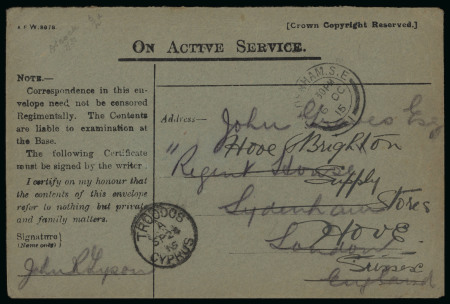 A.F.W. 3078.
[Crown Copyright Reserved.]
ON ACTIVE SERVICE.
NOTE.—
Correspondence in this en-
velope need not be censored
Regimentally. The Contents
are liable to examination at
the Base.
The following Certificate
must be signed by the writer.
I certify on my honour that
the contents of this envelope
refer to nothing but private
and family matters.
Signature
(Name only)
John R Tyson
Address—
John Esq
Hove & Brighton
"Regent House
Supply
Stores
Sydenham
Hove
London
Sussex
England
SYDENHAM. S.E.
OC
15
TROODOS
CYPRUS